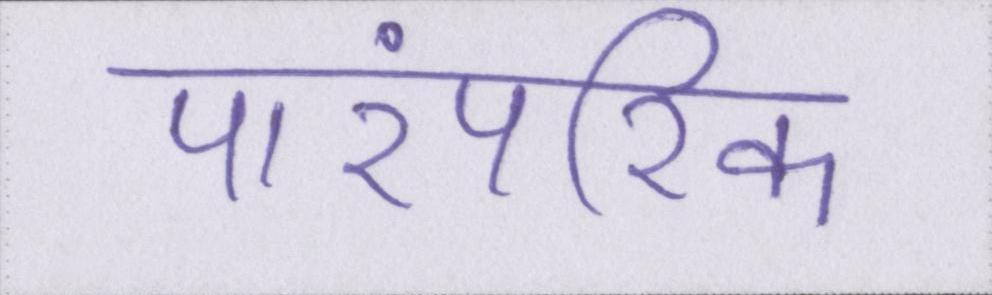 पारंपरिक